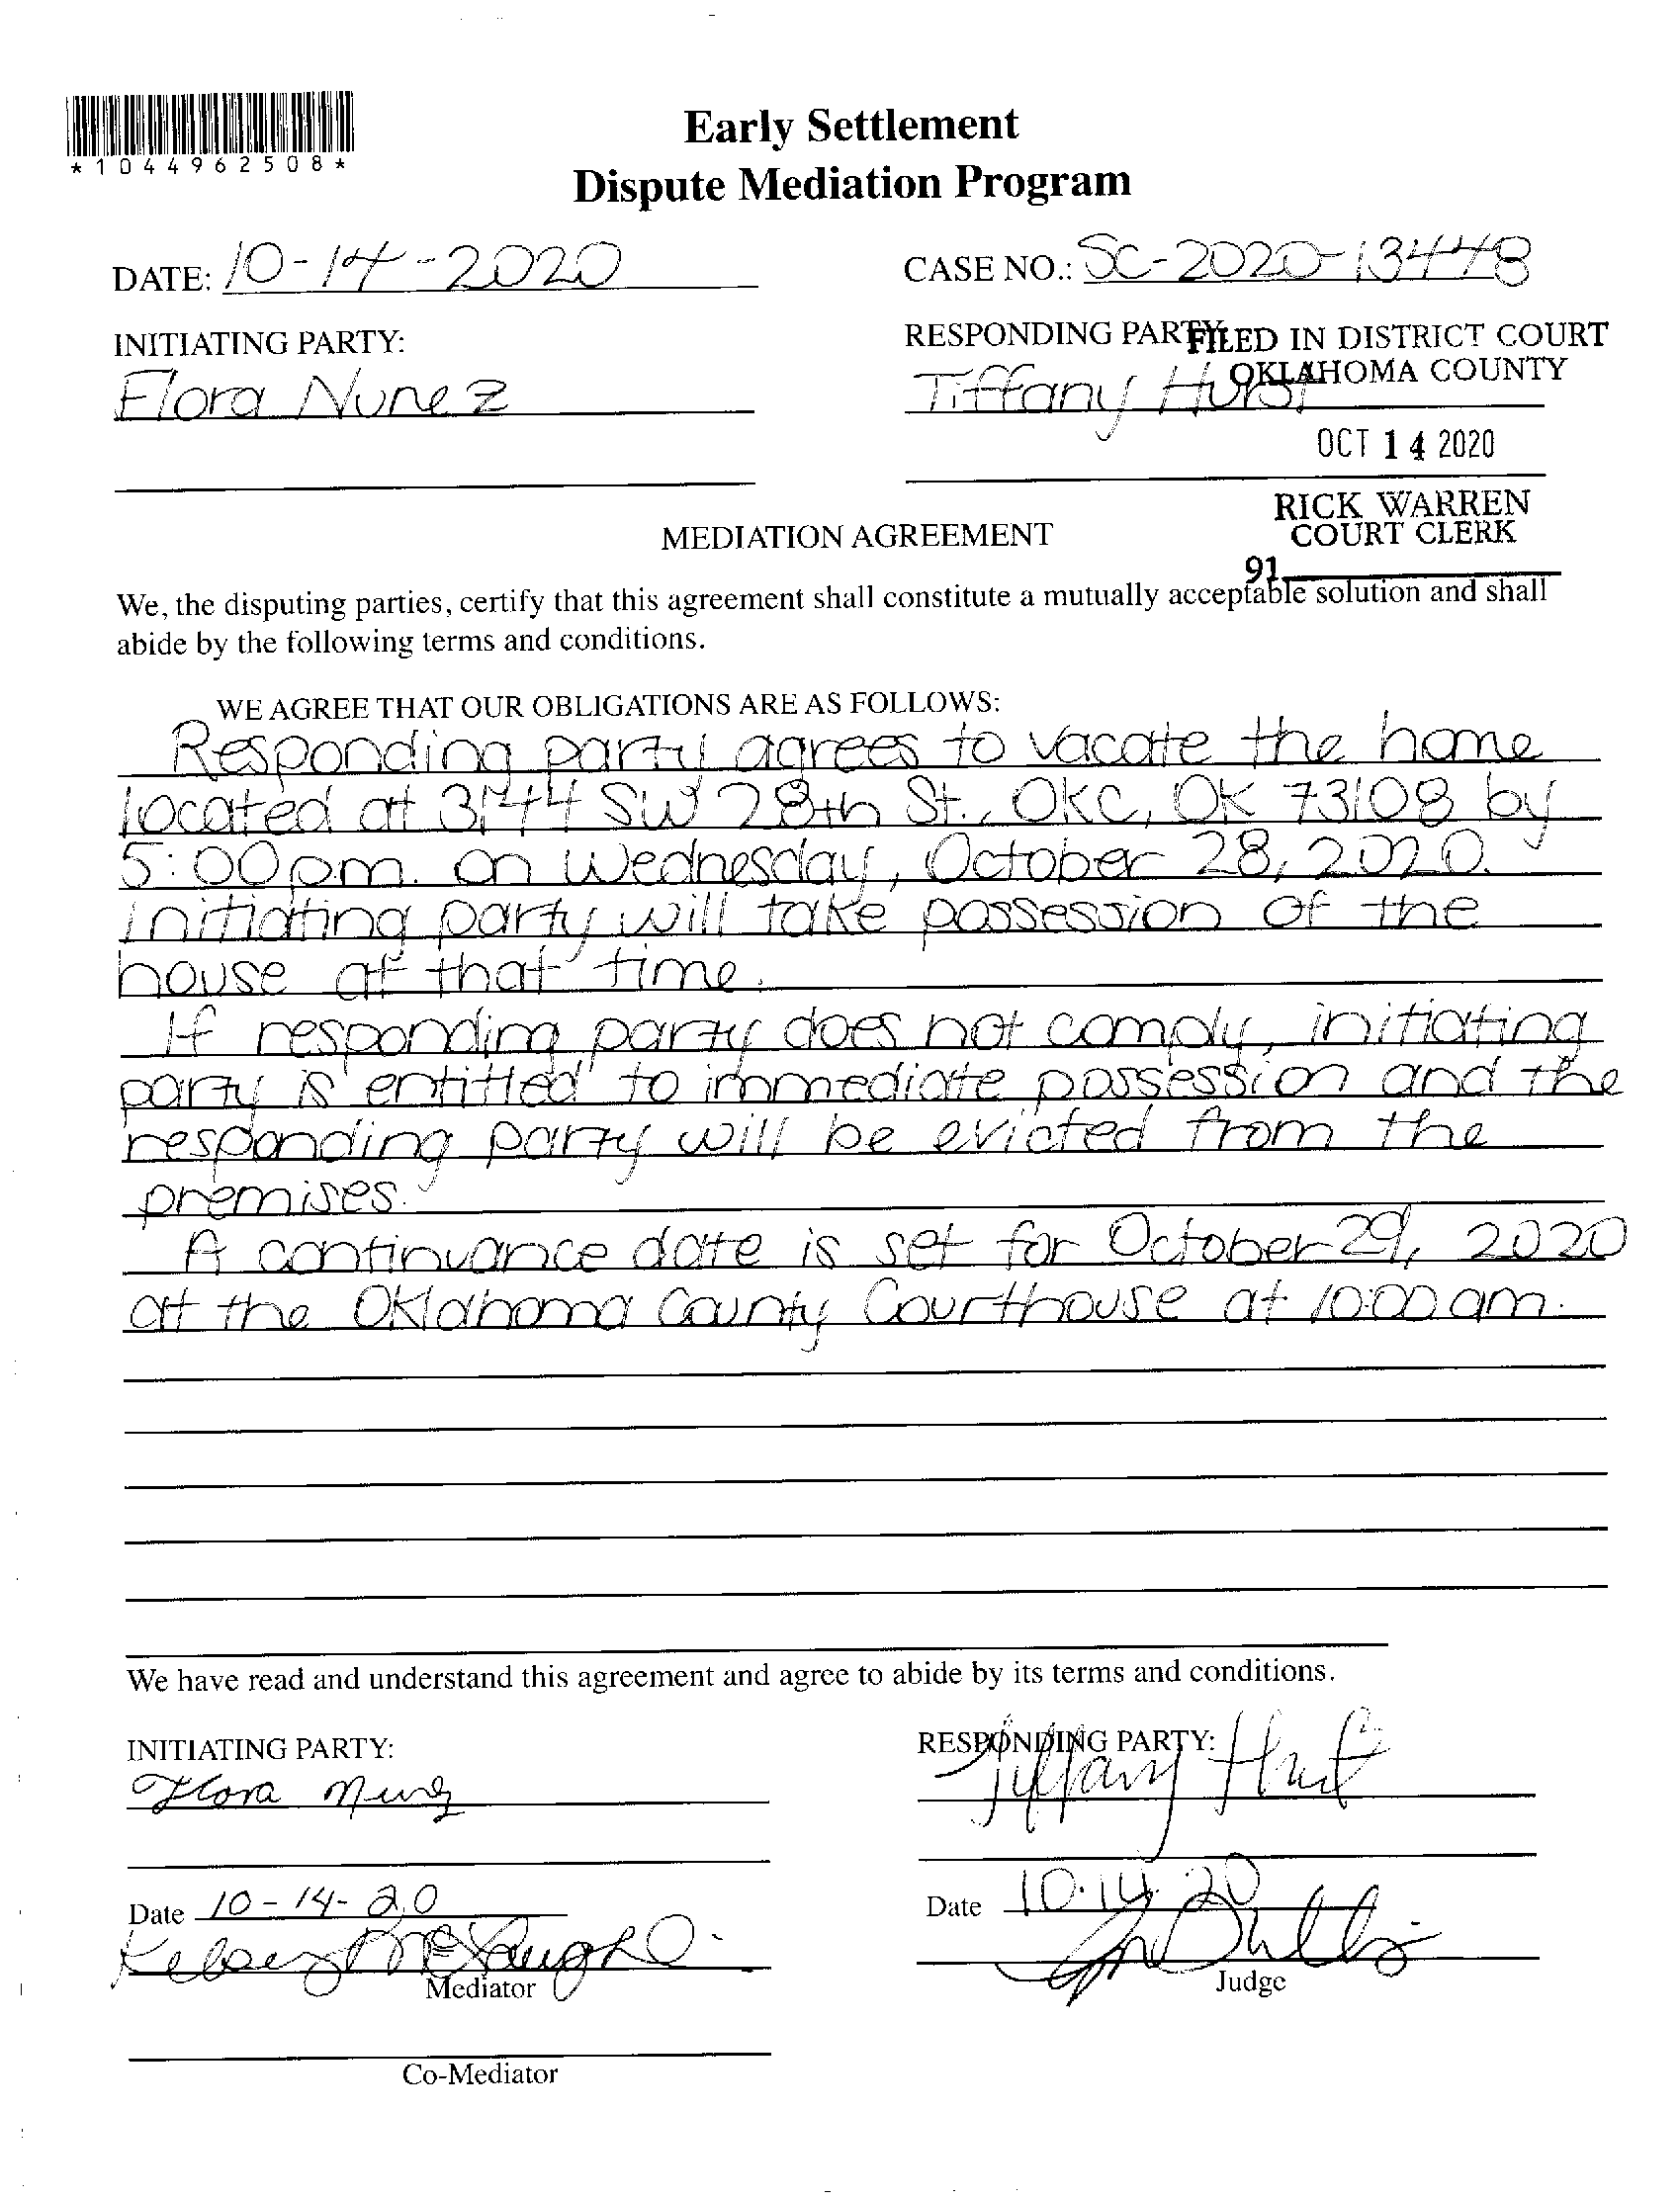 *1044962508*
Early Settlement
Dispute Mediation Program
DATE: 10-14-2020
CASE NO.: SC-2020-13448
INITIATING PARTY:
RESPONDING PARTY:
FILED IN DISTRICT COURT
OKLAHOMA COUNTY
Flora Nunez
Tiffany Hurst
OCT 14 2020
RICK WARREN
COURT CLERK
91
MEDIATION AGREEMENT
We, the disputing parties, certify that this agreement shall constitute a mutually acceptable solution and shall
abide by the following terms and conditions.
WE AGREE THAT OUR OBLIGATIONS ARE AS FOLLOWS:
Responding party agrees to vacate the home
located at SW 28th St., OKC, OK 73108 by
5:00 pm. on Wednesday, October 28, 2020.
Initiating party will take possession of the
house at that time.
If responding party does not comply, initiating
party is entitled to immediate possession and the
responding party will be evicted from the
premises.
A continuance date is set for October 29, 2020
at the Oklahoma County Courthouse at 10:00 am.
We have read and understand this agreement and agree to abide by its terms and conditions.
INITIATING PARTY:
RESPONDING PARTY:
Flora Nunez
Tiffany Hurst
Date 10-14-20
Date 10.14.20
Kelsey
Mediator
Judge
Co-Mediator